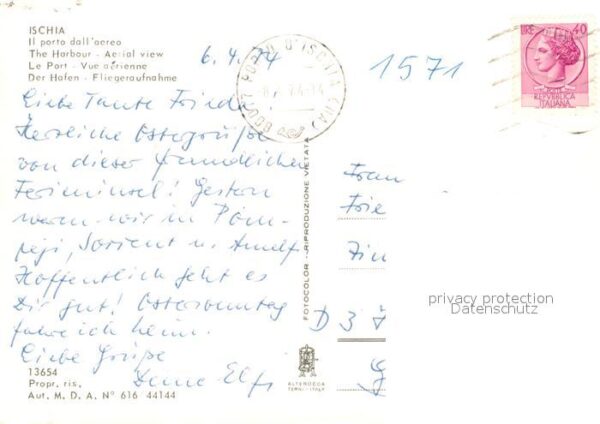 ISCHIA
Il porto dall'aereo
The Harbour - Aerial view
Le Port - Vue aérienne
Der Hafen - Fliegeraufnahme
6.4.74
1571
LIRE 40
REPVBBLICA
ITALIANA
Liebe Tante Frieda
Herzliche Ostergrüße
von dieser freundlichen
Ferieninsel! Gestern
waren wir in Pom-
peji, Sorrent u. Amalfi
Hoffentlich geht es
Dir gut! Ostersonntag
fahre ich heim.
Liebe Grüße
Deine Elfi
Frau
Frie
D 3
privacy protection
Datenschutz
FOTOCOLOR - RIPRODUZIONE VIETATA
ALTEROCCA
TERNI-ITALY
13654
Propr. ris.
Aut. M. D. A. N° 616 44144